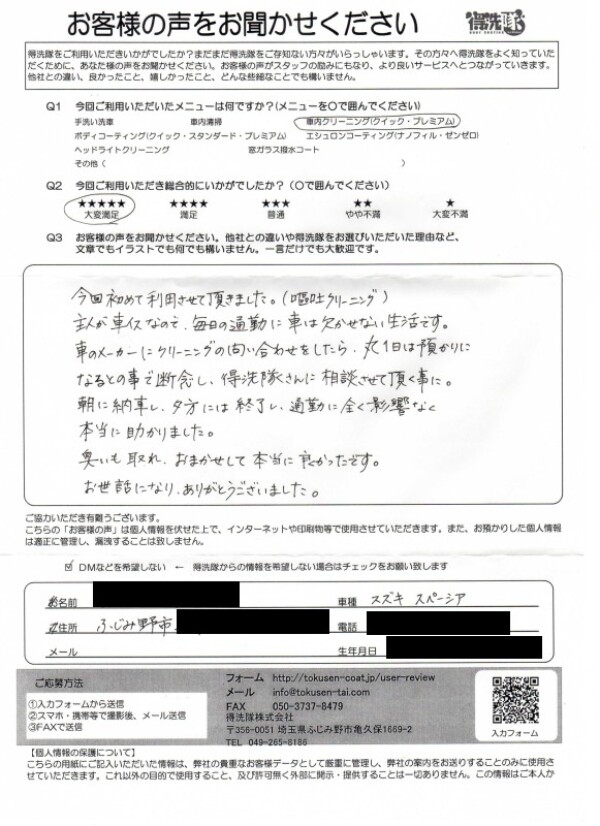 お客様の声をお聞かせください
得洗隊
得洗隊をご利用いただきいかがでしたか？まだまだ得洗隊をご存知ない方々がいらっしゃいます。その方々へ得洗隊をよく知っていた
だくために、あなた様の声をお聞かせください。お客様の声がスタッフの励みにもなり、より良いサービスへとつながっていきます。
他社との違い、良かったこと、嬉しかったこと、どんな些細なことでも構いません。
Q1 今回ご利用いただいたメニューは何ですか？(メニューを〇で囲んでください)
手洗い洗車 車内清掃 車内クリーニング(クイック・プレミアム)
ボディコーティング(クイック・スタンダード・プレミアム) エシュロンコーティング(ナノフィル・ゼンゼロ)
ヘッドライトクリーニング 窓ガラス撥水コート
その他（ ）
Q2 今回ご利用いただき総合的にいかがでしたか？（〇で囲んでください）
★★★★★ ★★★★ ★★★ ★★ ★
大変満足 満足 普通 やや不満 大変不満
Q3 お客様の声をお聞かせください。他社との違いや得洗隊をお選びいただいた理由など、
文章でもイラストでも何でも構いません。一言だけでも大歓迎です。
今回初めて利用させて頂きました。(嘔吐クリーニング)
主人が車イスなので、毎日の通勤に車は欠かせない生活です。
車のメーカーにクリーニングの問い合わせをしたら、丸1日は預かりに
なるとの事で断念し、得洗隊さんに相談させて頂く事に。
朝に納車し、夕方には終了し、通勤に全く影響なく
本当に助かりました。
臭いも取れ、おまかせして本当に良かったです。
お世話になり、ありがとうございました。
ご協力いただき有難うございます。
こちらの「お客様の声」は個人情報を伏せた上で、インターネットや印刷物等で使用させていただきます。また、お預かりした個人情報
は適正に管理し、漏洩することは致しません。
☑ DMなどを希望しない ← 得洗隊からの情報を希望しない場合はチェックをお願い致します
お名前 車種 スズキ スペーシア
ご住所 ふじみ野市 電話
メール 生年月日
ご応募方法
①入力フォームから送信
②スマホ・携帯等で撮影後、メール送信
③FAXで送信
フォーム http://tokusen-coat.jp/user-review
メール info@tokusen-tai.com
FAX 050-3737-8479
得洗隊株式会社
〒356-0051 埼玉県ふじみ野市亀久保1669-2
TEL 049-265-8186
入力フォーム
【個人情報の保護について】
こちらの用紙にご記入いただいた情報は、弊社の貴重なお客様データとして厳重に管理し、弊社の案内をお送りすることのみに使用さ
せていただきます。これ以外の目的で使用すること、及び許可無く外部に開示・提供することは一切ありません。この情報はご本人か